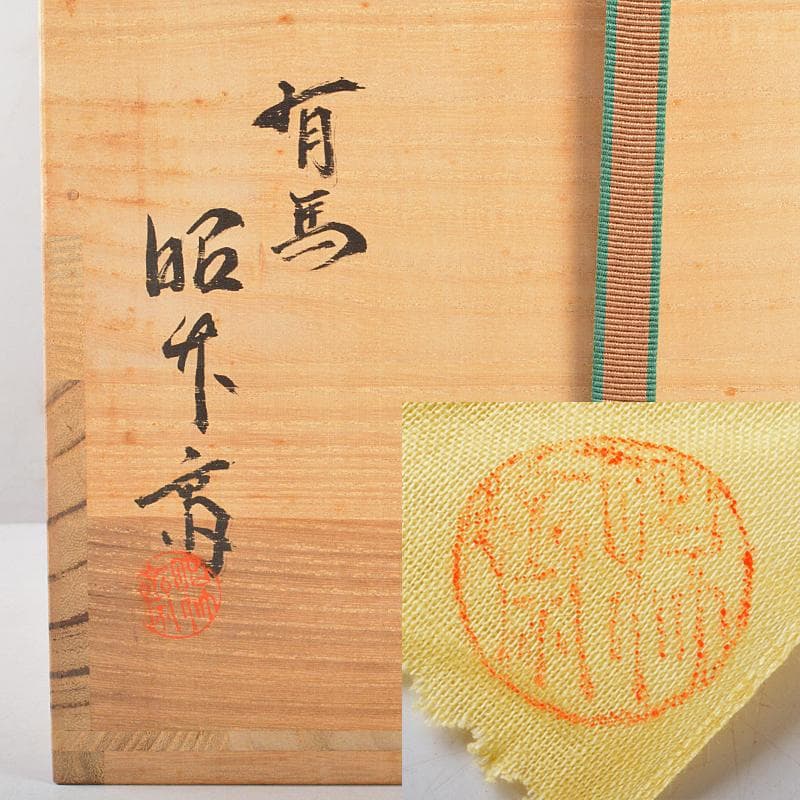 有馬
昭竹斎